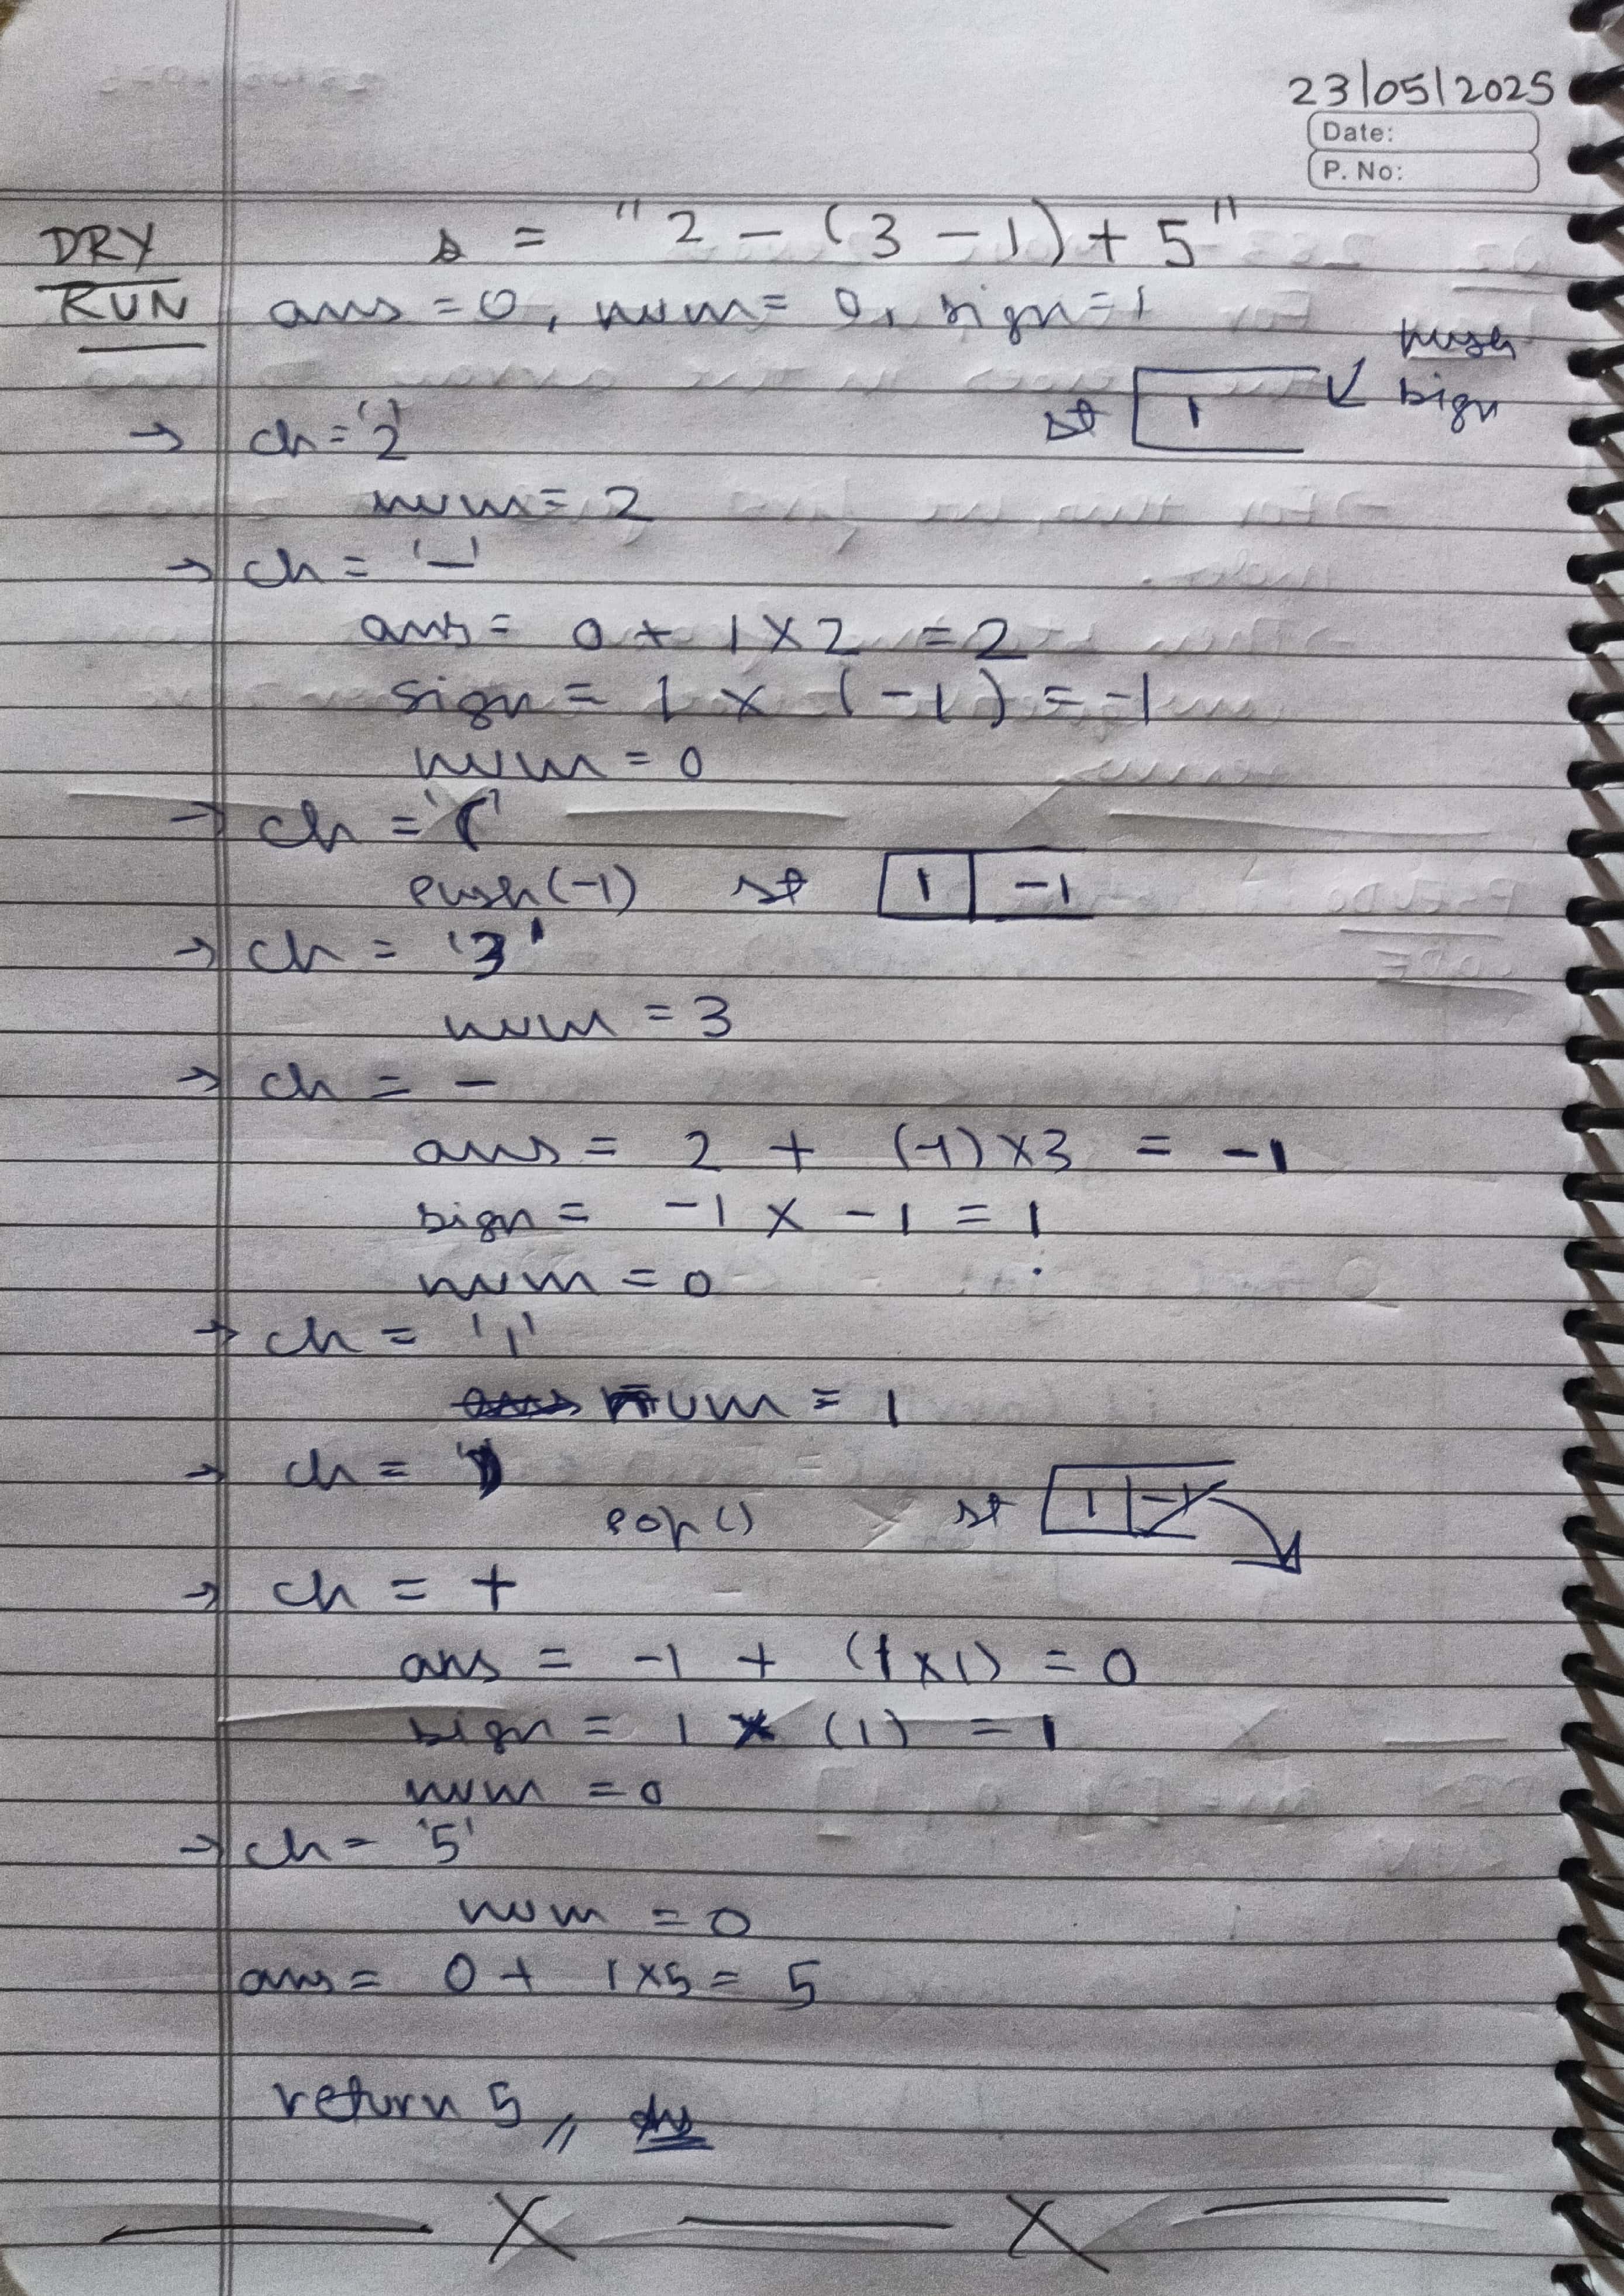 23/05/2025
Date:
P. No:
DRY RUN
s = "2 - (3 - 1) + 5"
ans = 0, num = 0, sign = 1
push sign
st 1
→ ch = '2'
num = 2
→ ch = '-'
ans = 0 + 1 × 2 = 2
sign = 1 × (-1) = -1
num = 0
→ ch = '('
push(-1) st 1 -1
→ ch = '3'
num = 3
→ ch = -
ans = 2 + (-1) × 3 = -1
sign = -1 × -1 = 1
num = 0
→ ch = '1'
num = 1
→ ch = ')'
pop() st 1 -1
→ ch = +
ans = -1 + (1 × 1) = 0
sign = 1 × (1) = 1
num = 0
→ ch = '5'
num = 0
ans = 0 + 1 × 5 = 5
return 5 // Ans
X X